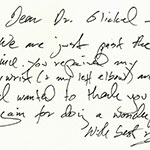 Dear Dr. Glickel —
We are just past the
time. You repaired my
wrist (& my left elbow) and
I wanted to thank you
team for doing a wonde
With best r